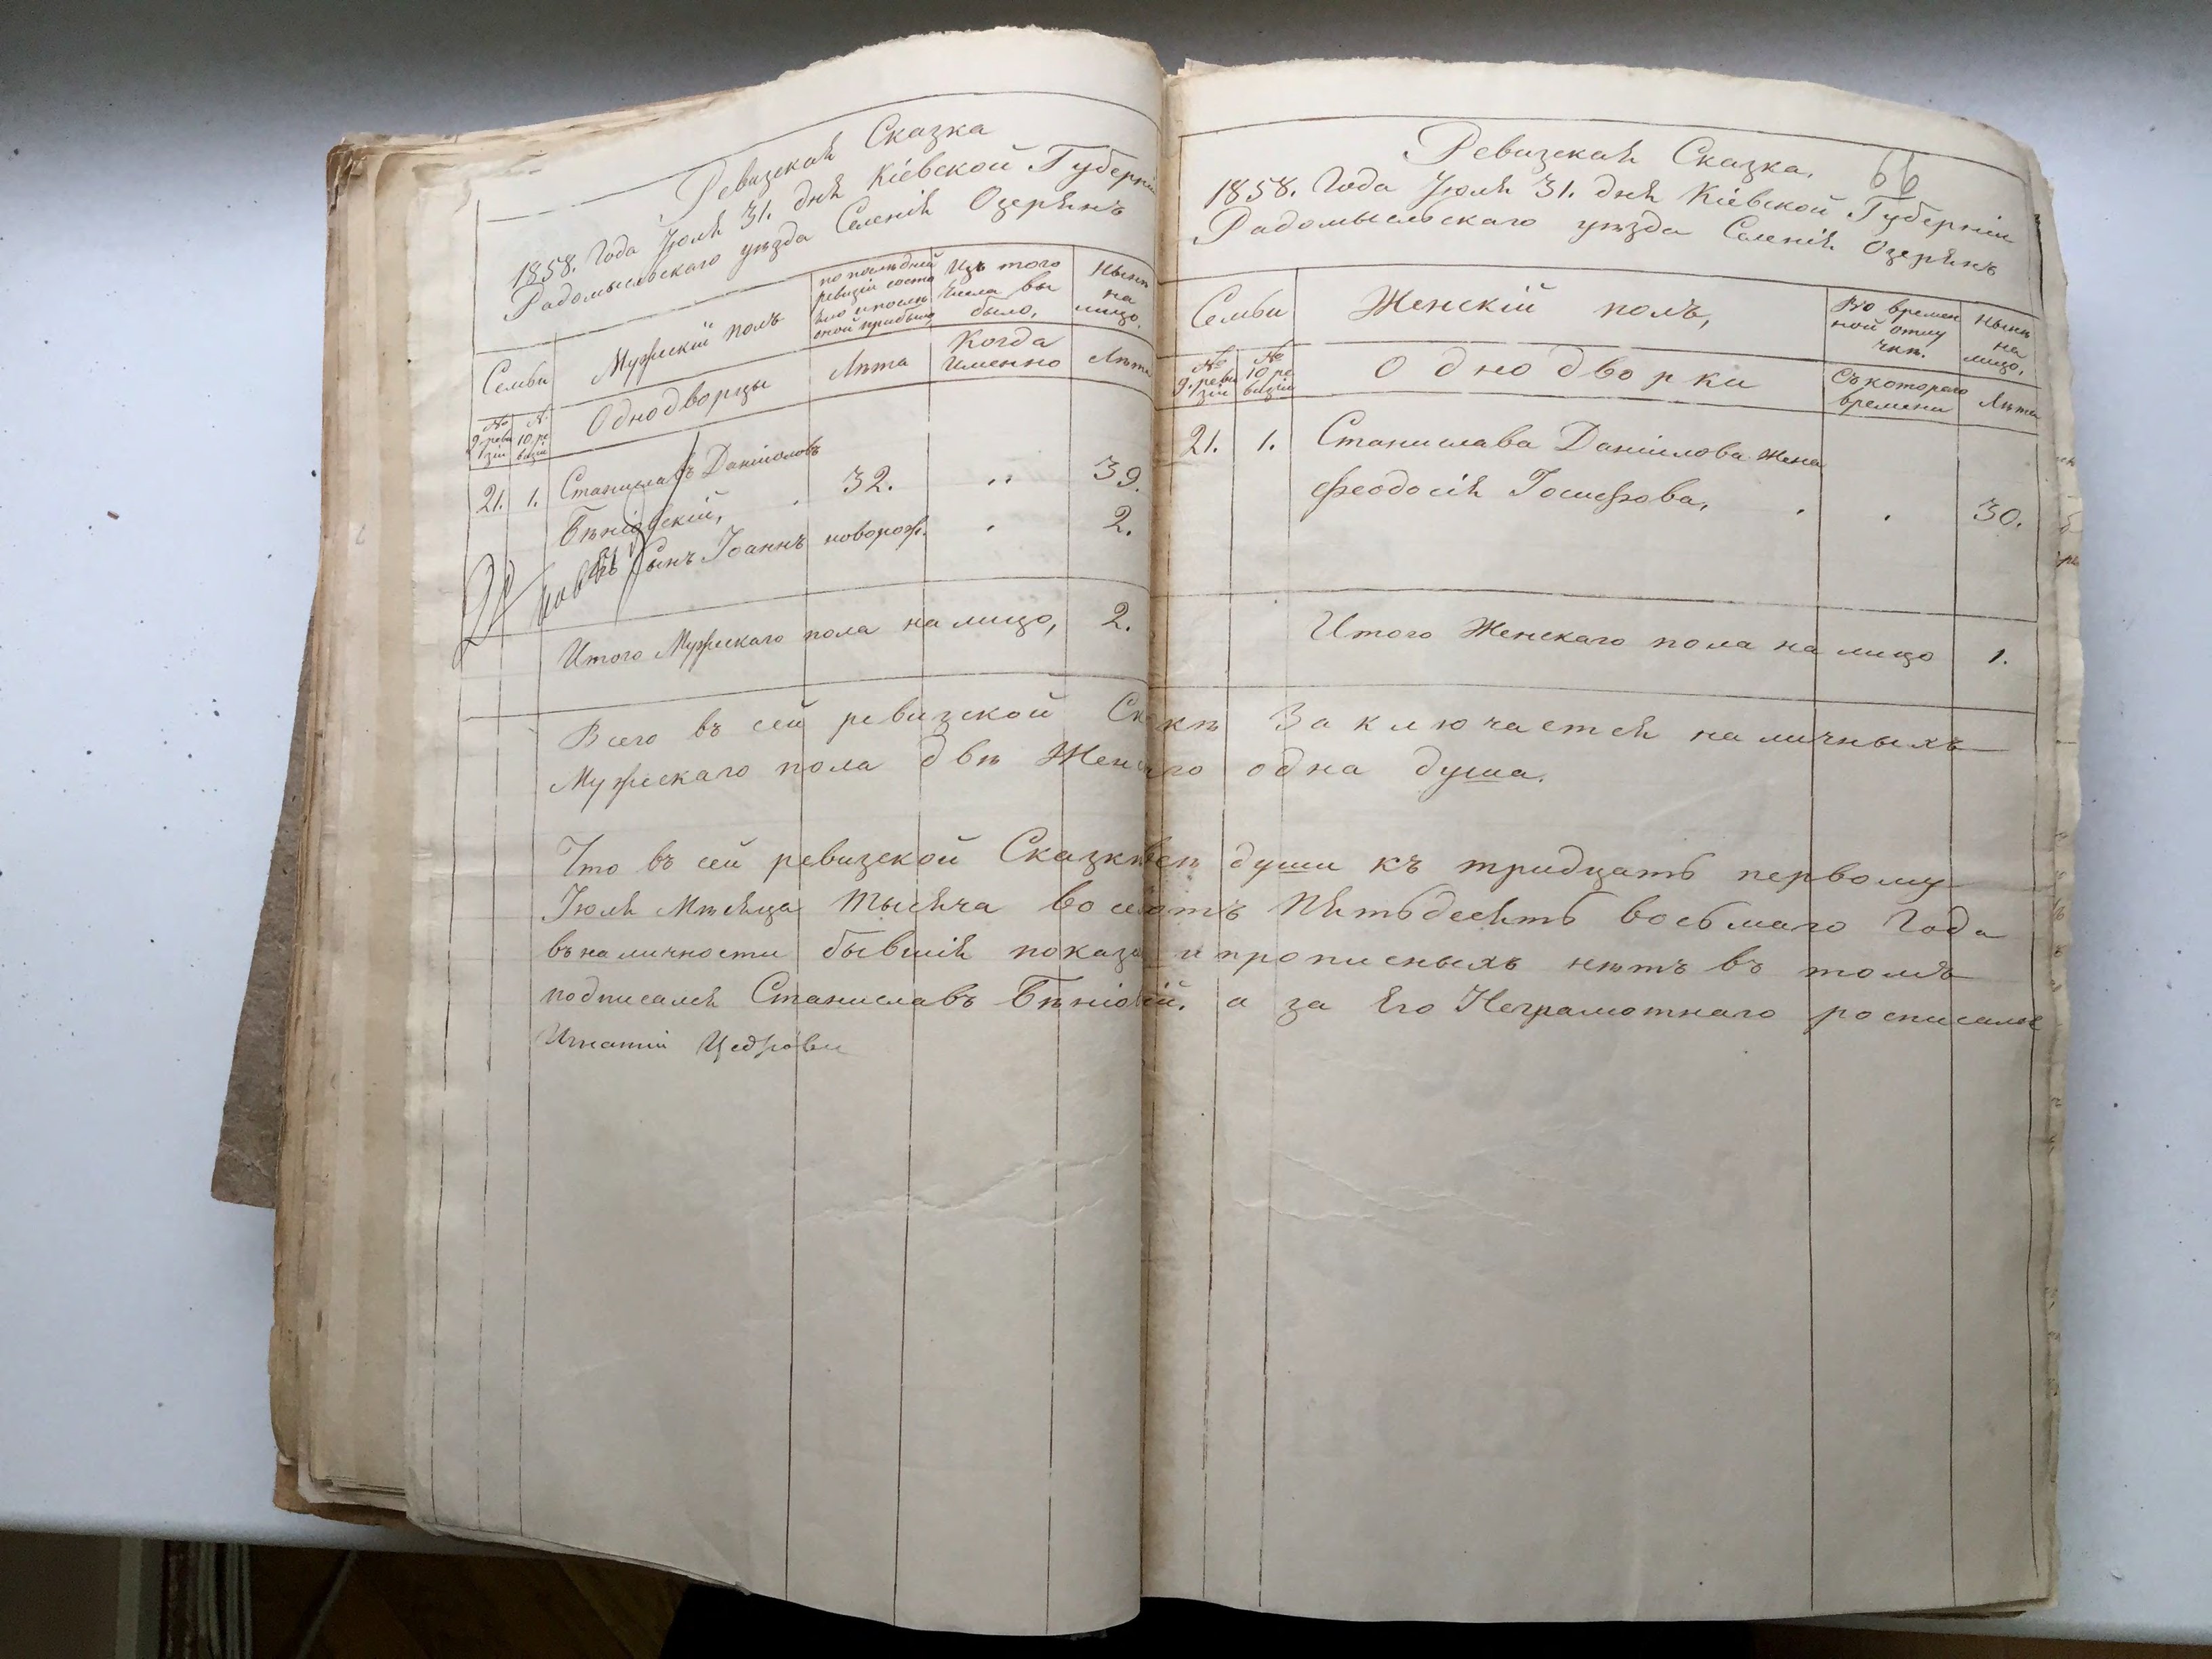 Ревизская Сказка
1858. Года Іюля 31. дня Кіевской Губерніи
Радомысльского уѣзда Селенія Озерянъ
Семьи
Мужескій полъ
по послѣдней ревизіи состо
яло и послѣ
оной прибыло
Изъ того
числа вы
было,
Нынѣ
на
лицо.
№ 9. реви
зіи
№ 10 ре
визіи
Однодворцы
Лѣта
Когда
именно
Лѣта
21. 1. Станиславъ Даніиловъ
Бѣніовскій, 32. „ 39.
Сынъ Іоаннъ новорож. 2.
Итого Мужескаго пола на лицо, 2.
Ревизская Сказка. 66
1858. Года Іюля 31. дня Кіевской Губерніи
Радомысльскаго уѣзда Селенія Озерянъ
Семьи
Женскій полъ,
Во времен
ной отлу
чкѣ.
Нынѣ
на
лицо,
№ 9. реви
зіи
№ 10 ре
визіи
Однодворки
Съ котораго
времени
Лѣта
21. 1. Станислава Даніилова жена
Феодосія Іосифова, 30.
Итого Женскаго пола на лицо 1.
Всего въ сей ревизской Ск кѣ Заключается наличныхъ
Мужескаго пола двѣ Женс го одна душа.
Что въ сей ревизской Сказкѣ всѣ души къ тридцать первому
Іюля Мѣсяца тысяча восемсотъ Пятьдесятъ восьмаго Года
въ наличности бывшія показ и прописныхъ нѣтъ въ томъ
подписался Станиславъ Бѣніов ій. а за Его Неграмотнаго росписался
Игнатій